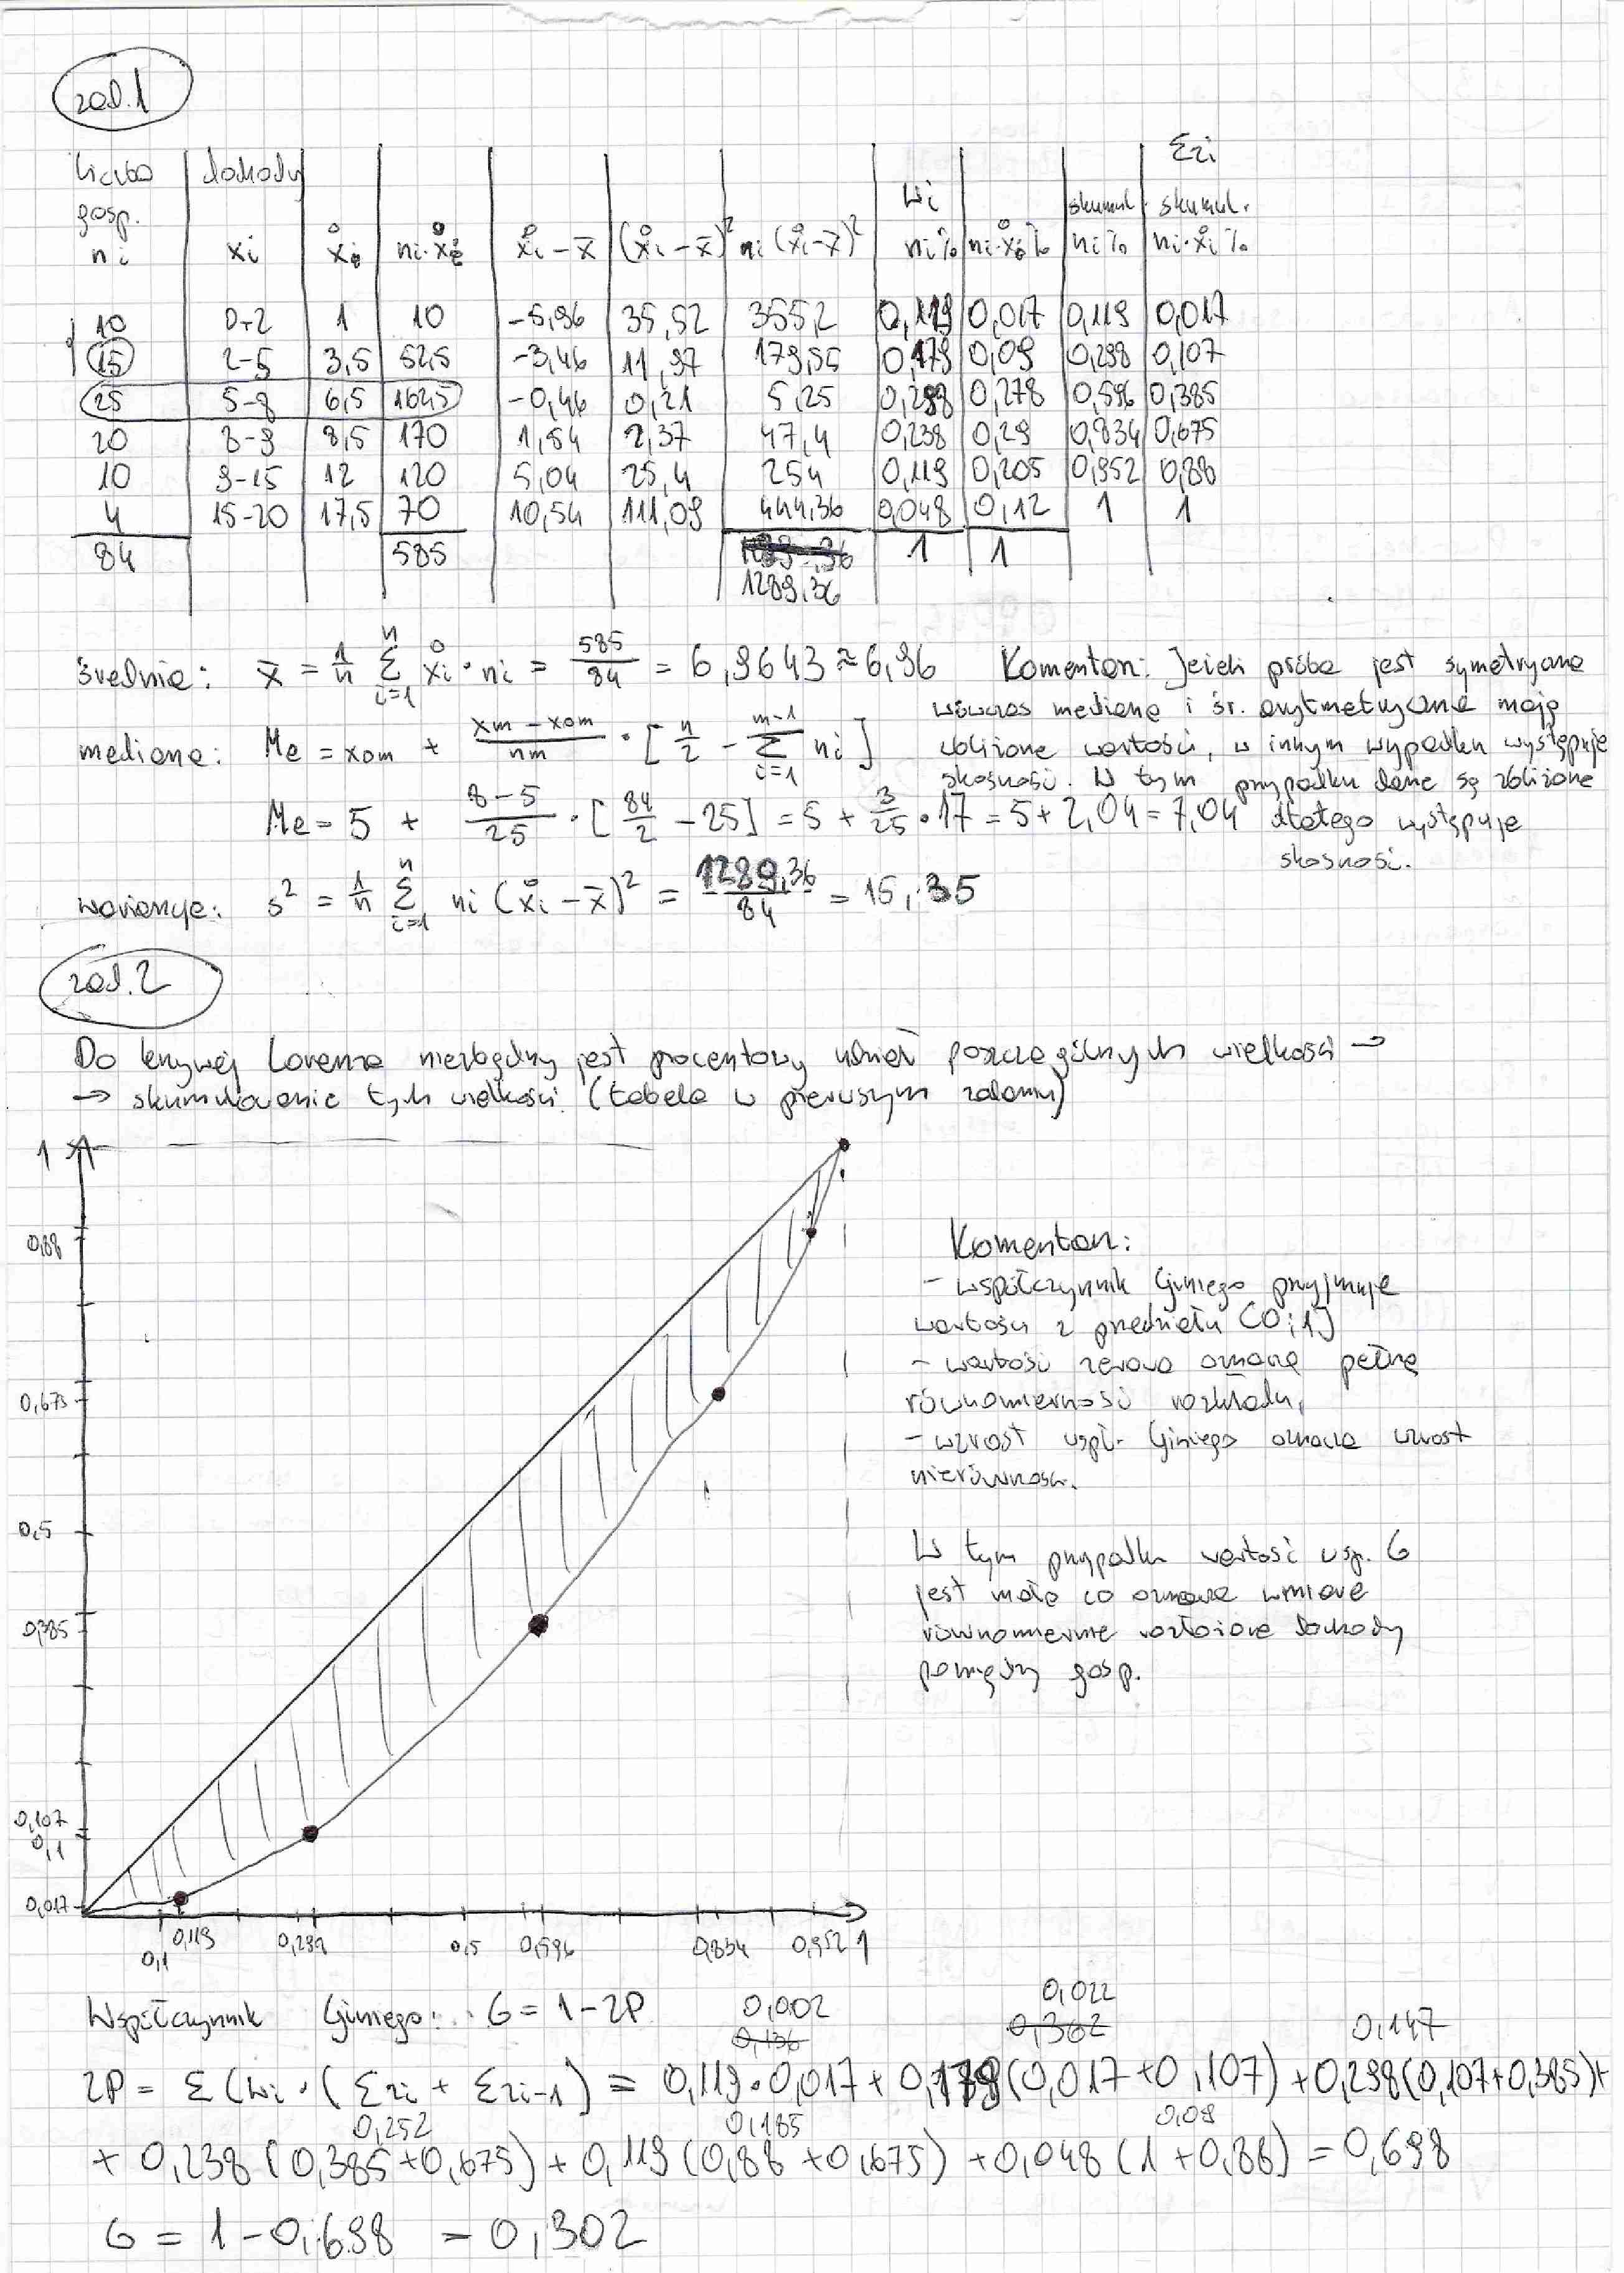 zad.1
Σzi
liczba dochody wi skumul. skumul.
gosp.
ni xi x̊i ni·x̊i x̊i-x̄ (x̊i-x̄)² ni(x̊i-x̄)² ni% ni·x̊i% ni% ni·x̊i%
10 0-2 1 10 -5,96 35,52 355,2 0,119 0,017 0,119 0,017
15 2-5 3,5 52,5 -3,46 11,97 179,55 0,179 0,09 0,298 0,107
25 5-8 6,5 162,5 -0,46 0,21 5,25 0,298 0,278 0,596 0,385
20 8-9 8,5 170 1,54 2,37 47,4 0,238 0,29 0,834 0,675
10 9-15 12 120 5,04 25,4 254 0,119 0,205 0,952 0,88
4 15-20 17,5 70 10,54 111,09 444,36 0,048 0,12 1 1
84 585 1 1
1289,36
średnia: x̄ = 1/n Σ(i=1..n) x̊i · ni = 585/84 = 6,9643 ≈ 6,96 Komentarz: Jeżeli próba jest symetryczna
wówczas mediana i śr. arytmetyczna mają
mediana: Me = xom + (xm - xom)/nm · [n/2 - Σ(i=1..m-1) ni] zbliżone wartości, w innym wypadku występuje
skośność. W tym przypadku dane są zbliżone
Me = 5 + (8-5)/25 · [84/2 - 25] = 5 + 3/25 · 17 = 5 + 2,04 = 7,04 dlatego występuje
skośność.
wariancja: s² = 1/n Σ(i=1..n) ni (x̊i - x̄)² = 1289,36/84 = 15,35
zad.2
Do krzywej Lorenza niezbędny jest procentowy udział poszczególnych wielkości →
→ skumulowanie tych wielkości. (tabela w pierwszym zadaniu)
1
0,88
0,675
0,5
0,385
0,107
0,1
0,017
0,1 0,119 0,298 0,5 0,596 0,834 0,952 1
Komentarz:
- współczynnik Giniego przyjmuje
wartości z przedziału [0;1]
- wartość zerowa oznacza pełną
równomierność rozkładu,
- wzrost wspł. Giniego oznacza wzrost
nierówności.
W tym przypadku wartość wsp. G
jest mała co oznacza w miarę
równomiernie rozłożone dochody
pomiędzy gosp.
Współczynnik Giniego: G = 1-2P
0,002 0,022 0,147
0,136 0,362
2P = Σ(wi · (Σzi + Σzi-1) = 0,119·0,017 + 0,179(0,017+0,107) + 0,298(0,107+0,385)+
0,252 0,185 0,09
+ 0,238(0,385+0,675) + 0,119(0,88+0,675) + 0,048(1+0,88) = 0,698
G = 1-0,698 = 0,302